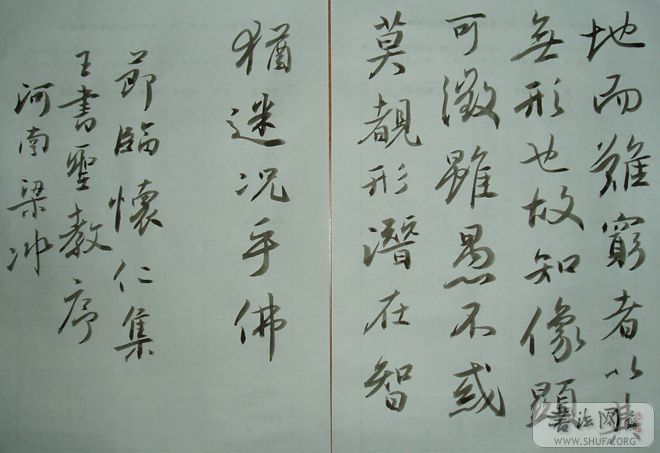 地而難窮者以其
無形也故知像顯
可徵雖愚不惑
莫覩形潛在智
猶迷况乎佛
節臨懷仁集
王書聖教序
河南梁冲
書法网
WWW.SHUFA.ORG